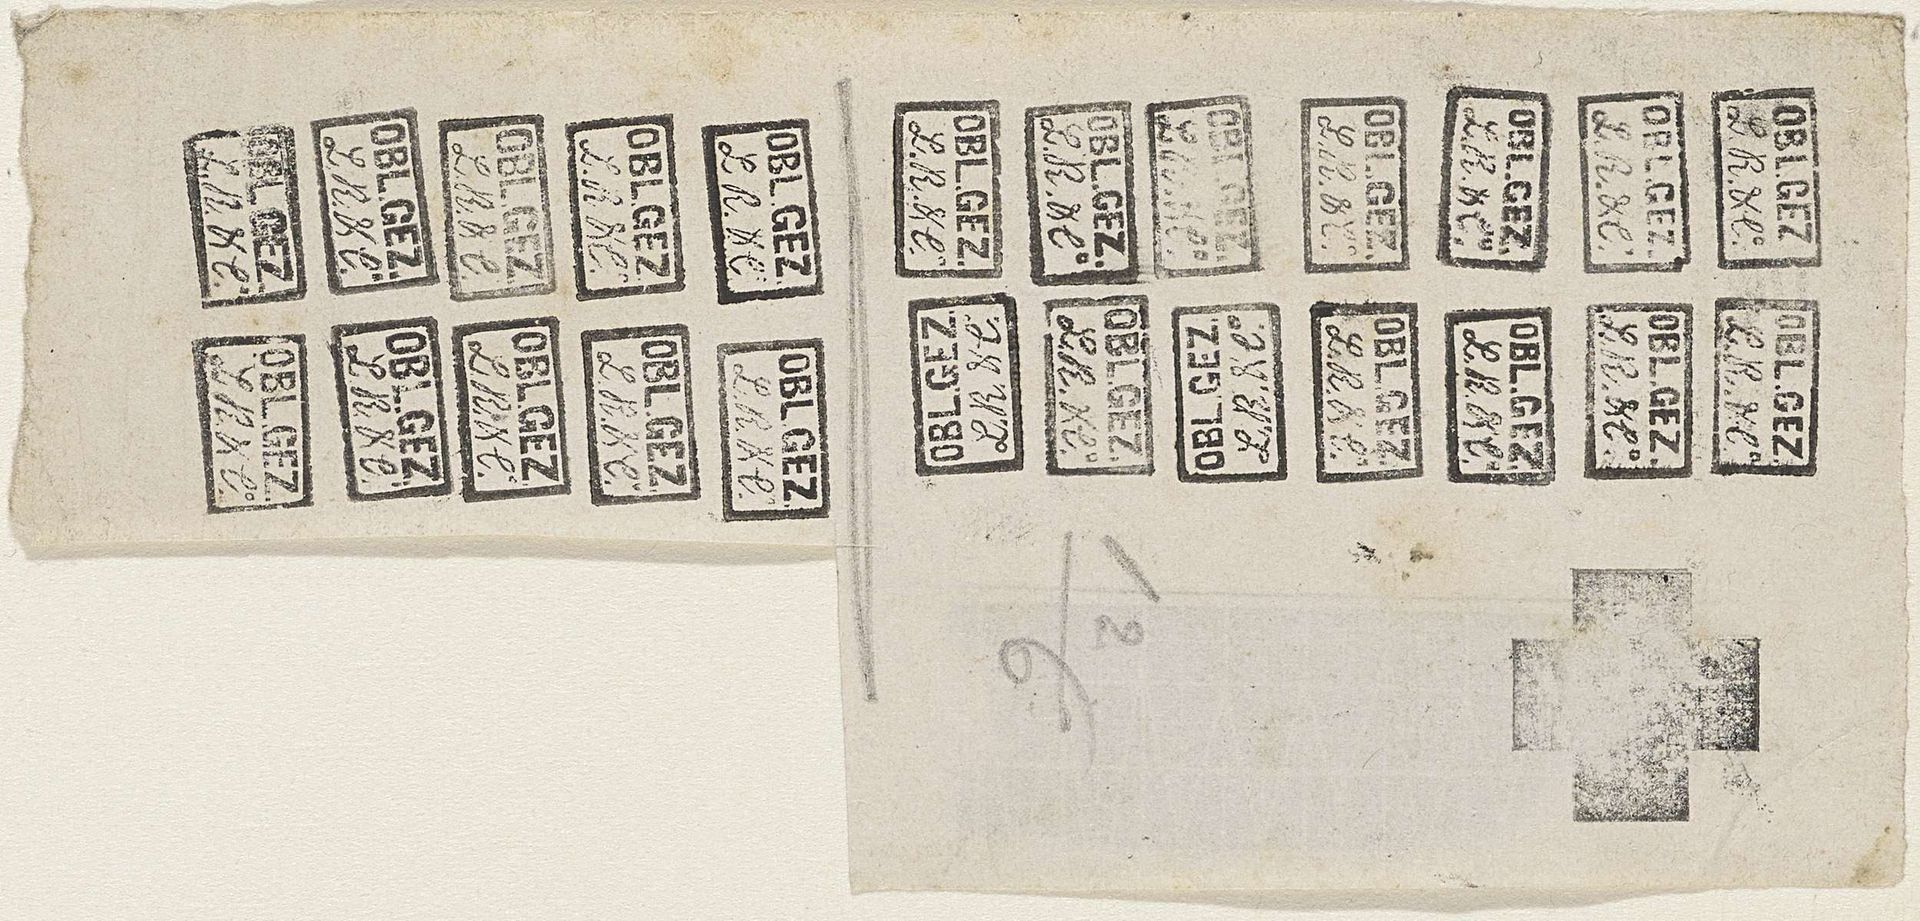 OBL.GEZ.
L.R.&Co.
OBL.GEZ.
L.R.&Co.
OBL.GEZ.
L.R.&Co.
OBL.GEZ.
L.R.&Co.
OBL.GEZ.
L.R.&Co.
OBL.GEZ.
L.R.&Co.
OBL.GEZ.
L.R.&Co.
OBL.GEZ.
L.R.&Co.
OBL.GEZ.
L.R.&Co.
OBL.GEZ.
L.R.&Co.
OBL.GEZ.
L.R.&Co.
OBL.GEZ.
L.R.&Co.
OBL.GEZ.
L.R.&Co.
OBL.GEZ.
L.R.&Co.
OBL.GEZ.
L.R.&Co.
OBL.GEZ.
L.R.&Co.
OBL.GEZ.
L.R.&Co.
OBL.GEZ.
L.R.&Co.
OBL.GEZ.
L.R.&Co.
OBL.GEZ.
L.R.&Co.
OBL.GEZ.
L.R.&Co.
OBL.GEZ.
L.R.&Co.
OBL.GEZ.
L.R.&Co.
OBL.GEZ.
L.R.&Co.